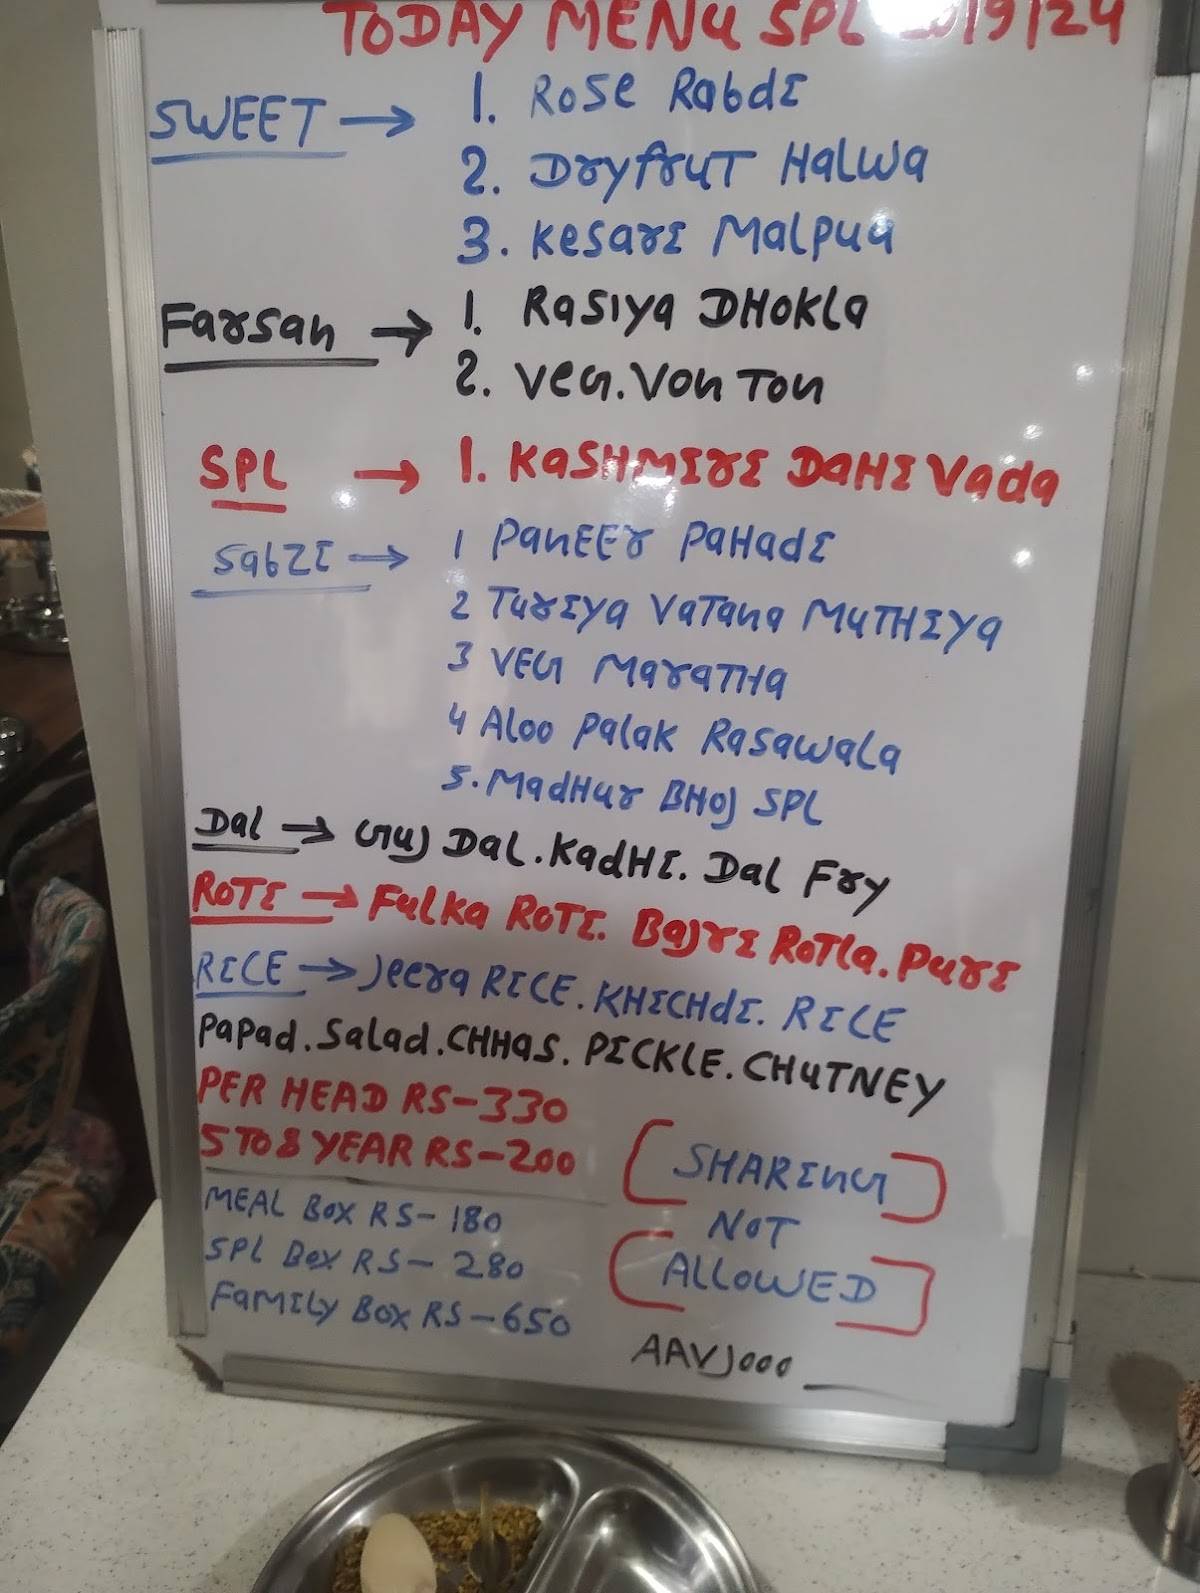 TODAY MENU SPL 20/9/24
SWEET → 1. Rose RabdI
2. Dryfrut Halwa
3. KesarI Malpua
Farsan → 1. Rasiya DHokla
2. Veg. Von Ton
SPL → 1. KaSHMIrI DaHI Vada
SabZI → 1 PanEEr PaHadI
2 TurIya VaTana MuTHIya
3 VEG MaraTHa
4 Aloo Palak Rasawala
5. MadHur BHoj SPL
Dal → Guj Dal. KadHI. Dal Fry
ROTI → Fulka ROTI. BajrI ROTla. PurI
RICE → Jeera RICE. KHICHdI. RICE
Papad. Salad. CHHas. PICKLE. CHUTNEY
PER HEAD RS-330
5 TO 8 YEAR RS-200
MEAL BOX RS-180
SPL BOX RS-280
FAMILY BOX RS-650
[SHARING]
NOT
[ALLOWED]
AAVJOOO